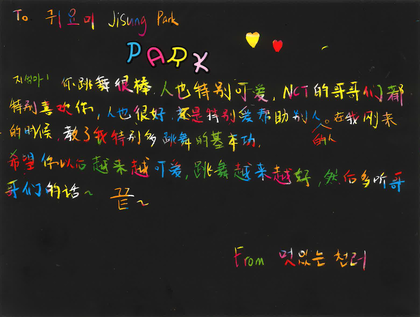 To 귀요미 Jisung Park
PARK
지성아! 你跳舞很棒,人也特别可爱,NCT的哥哥们都
特别喜欢你,人也很好,还是特别爱帮助别人的人。在我刚来
的时候,教了我特别多跳舞的基本功,
希望你以后越来越可爱,跳舞越来越好,然后多听哥
哥们的话~ 끝~
From 멋있는 천러